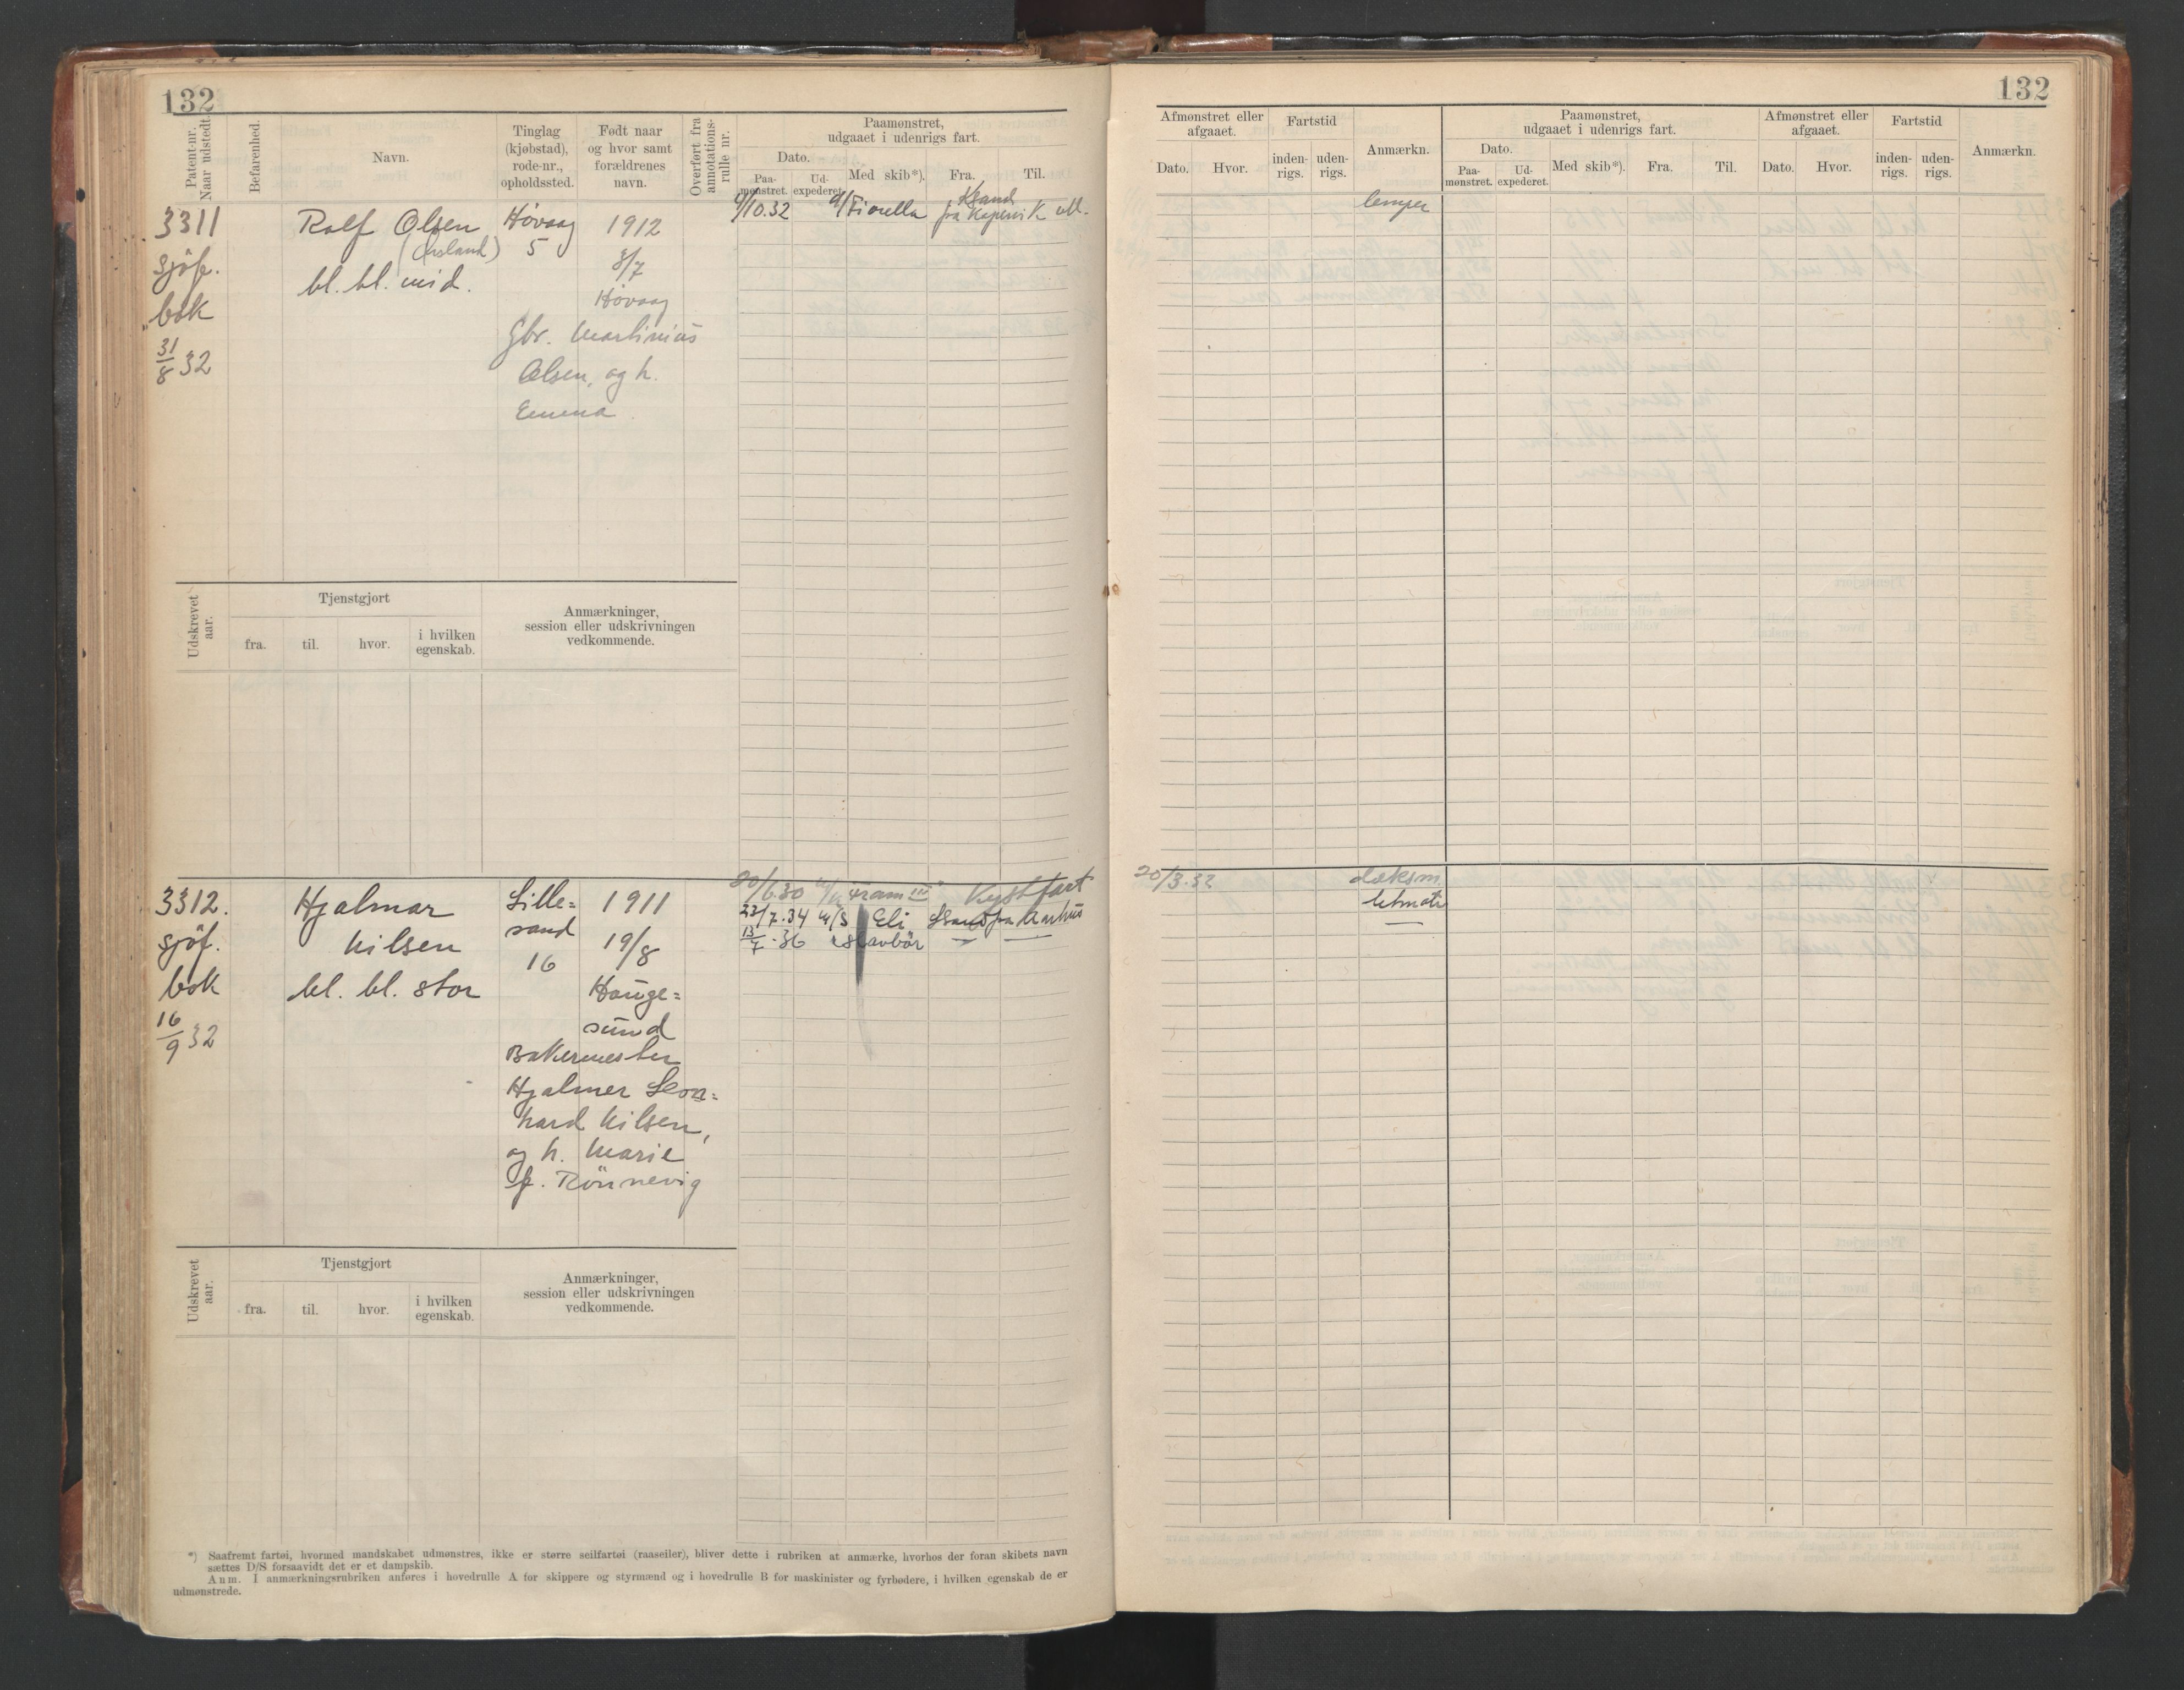 132
Patent-nr. Naar udstedt.
Befarenhed.
Navn.
Tinglag (kjøbstad), rode-nr., opholdssted.
Født naar og hvor samt forældrenes navn.
Overført fra annotations-rulle nr.
Paamønstret, udgaaet i udenrigs fart.
Dato.
Paa-mønstret.
Ud-expederet.
Med skib*).
Fra.
Til.
3311
sjöf.
bok
31/8 32
Rolf Olsen
bl. bl. mid.
Høvaag
5
1912
8/7
Høvaag
Gbr. Martinius
Olsen, og h.
Emma
/10.32
Fiorella
fra Kopervik
Udskrevet aar.
Tjenstgjort
fra.
til.
hvor.
i hvilken egenskab.
Anmærkninger, session eller udskrivningen vedkommende.
3312.
sjöf.
bok
16/9 32
Hjalmar
Nilsen
bl. bl. stor
Lille=
sand
16
1911
19/8
Hauge=
sund
Bakermester
Hjalmer Leon=
hard Nilsen,
og h. Marie
f. Rönnevig
20/6.30 Fram III Kystfart
23/7.34 M/S Eli fra Aarhus
13/7.36
Udskrevet aar.
Tjenstgjort
fra.
til.
hvor.
i hvilken egenskab.
Anmærkninger, session eller udskrivningen vedkommende.
*) Saafremt fartøi, hvormed mandskabet udmønstres, ikke er større seilfartøi (raaseiler), bliver dette i rubriken at anmærke, hvorhos der foran skibets navn
sættes D/S forsaavidt det er et dampskib.
Anm. I anmærkningsrubriken anføres i hovedrulle A for skippere og styrmænd og i hovedrulle B for maskinister og fyrbødere, i hvilken egenskab de er
udmønstrede.
132
Afmønstret eller afgaaet.
Dato.
Hvor.
Fartstid
inden-rigs.
uden-rigs.
Anmærkn.
Paamønstret, udgaaet i udenrigs fart.
Dato.
Paa-mønstret.
Ud-expederet.
Med skib*).
Fra.
Til.
Afmønstret eller afgaaet.
Dato.
Hvor.
Fartstid
inden-rigs.
uden-rigs.
Anmærkn.
lemper
20/3.32
dæksm.
letmatr